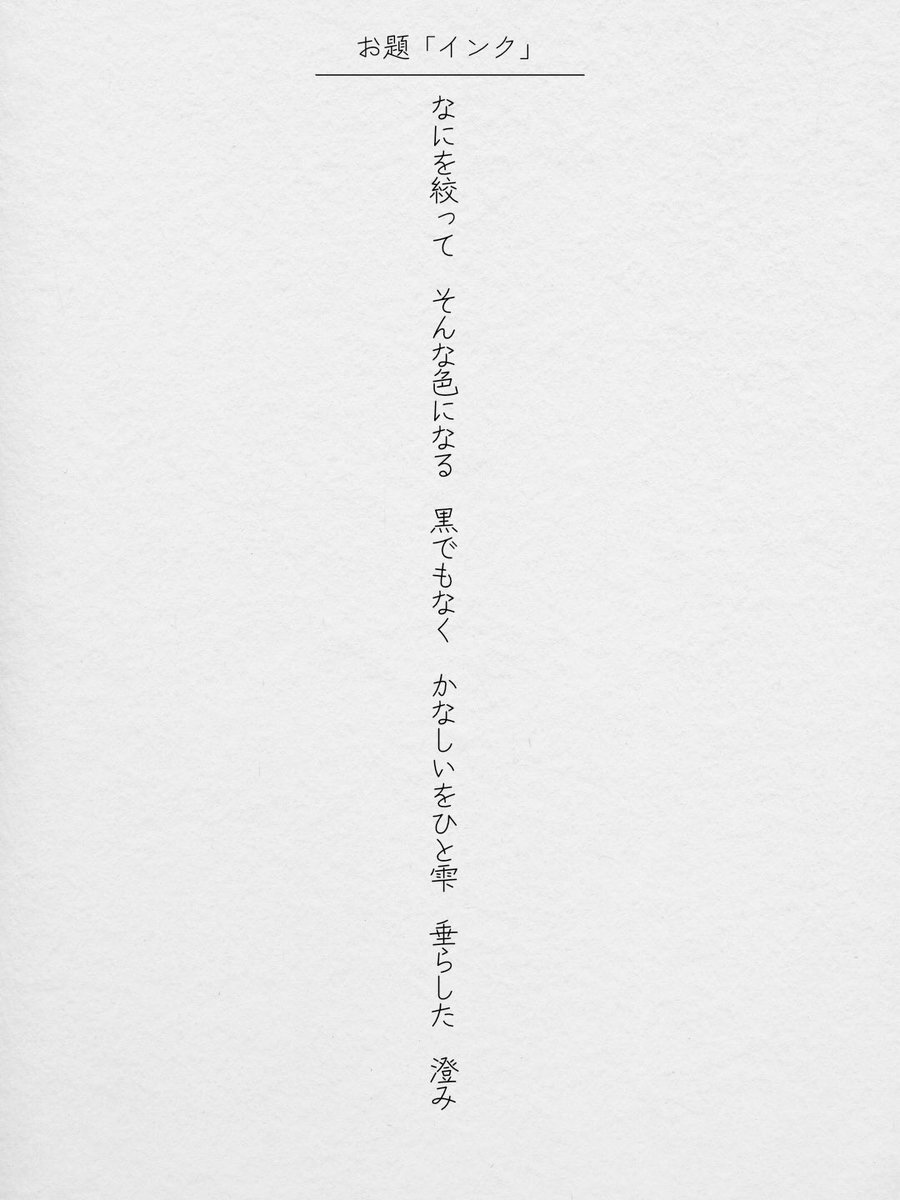 お題「インク」
なにを絞って　そんな色になる　黒でもなく　かなしいをひと雫　垂らした　澄み